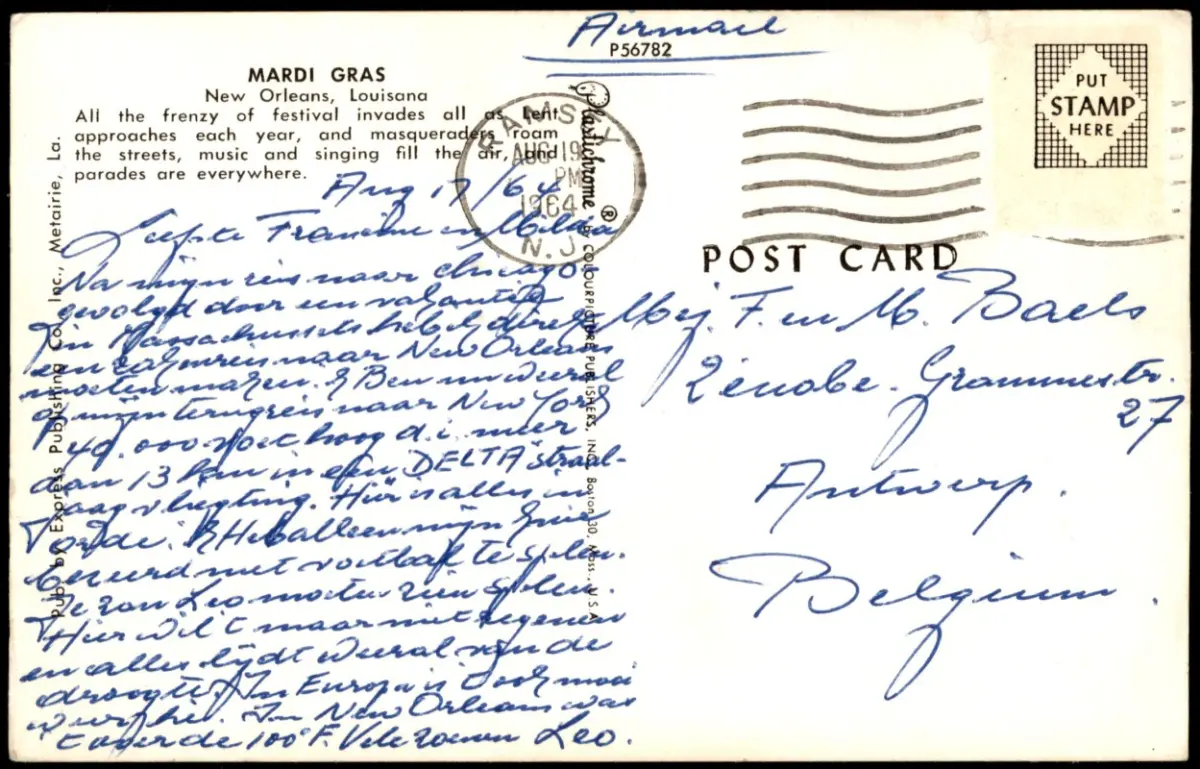 Airmail
P56782
MARDI GRAS
New Orleans, Louisana
All the frenzy of festival invades all as Lent
approaches each year, and masqueraders roam
the streets, music and singing fill the air, and
parades are everywhere.
Pub. by Express Publishing Co., Inc., Metairie, La.
Plastichrome ® BY COLOURPICTURE PUBLISHERS, INC., Boston 30, Mass., U.S.A.
RAMSEY
AUG 19
PM
1964
N.J.
PUT
STAMP
HERE
POST CARD
Aug 17/64
Liefste Francine en Milia
Na mijn reis naar Chicago
gevolgd door een vakantie
in Massachussets heb ik direkt
een zakenreis naar New Orleans
moeten maken. Ik Ben nu weeral
op mijn terugreis naar New York
40.000 voet hoog d.i. meer
dan 13 km in een "DELTA" straal-
vliegting. Hier is alles in
orde. Ik Heb alleen mijn knie
bezeerd met voetbal te spelen.
Je zou Leo moeten zien spelen.
Hier wil t maar niet regenen
en alles lijdt weeral van de
droogte. In Europa is t ook mooi
weer hé. In New Orleans was
t over de 100° F. Vele zoenen Leo.
Mej. F. en M. Baels
Zenobe-Grammestr.
27
Antwerp.
Belgium.